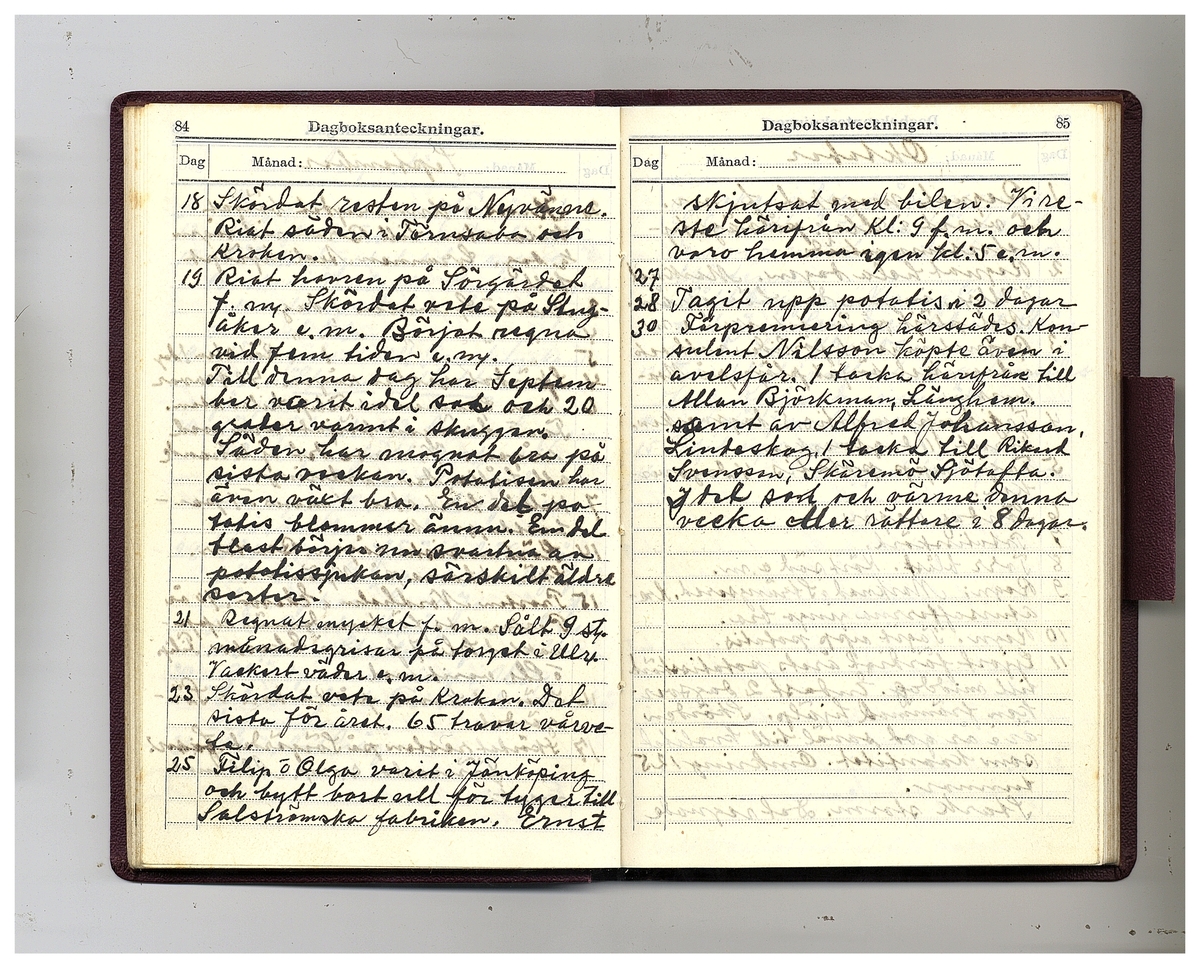 84 Dagboksanteckningar.
Dag Månad:
18 Skördat resten på Nyvänne.
Kiat säden i Törnsaba och
Kroken.
19 Kiat havren på Sörgärdet
f. m. Skördat vete på Stug-
åker e. m. Börjat regna
vid fem tiden e. m.
Till denna dag har Septem
ber varit idel sol och 20
grader varmt i skuggan.
Säden har mognat bra på
sista veckan. Potatisen har
även växt bra. En del po
tatis blommar ännu. En del
blast börja nu svartna av
potatissjukan, särskilt äldre
sorter.
21 Regnat mycket f. m. Sålt 9 st.
månadsgrisar på torget i Ulr.
Vackert väder e. m.
23 Skördat vete på Kroken. Det
sista för året. 65 travar vårve-
te.
25 Filip o Olga varit i Jönköping
och bytt bort ull för tyger till
Salströmska fabriken. Ernst
Dagboksanteckningar. 85
Dag Månad:
skjutsat med bilen. Vi re-
ste härifrån Kl: 9 f. m. och
voro hemma igen kl: 5 e. m.
27
28 Tagit upp potatis i 2 dagar
30 Fårpremiering härstädes. Kon
sulent Nilsson köpte även i
avelsfår. 1 tacka härifrån till
Allan Björkman, Länghem.
samt av Alfred Johansson,
Lindeskog 1 tacka till Rikard
Svensson, Skäremö Sjötofta.
Idel sol och värme denna
vecka eller rättare i 8 dagar.